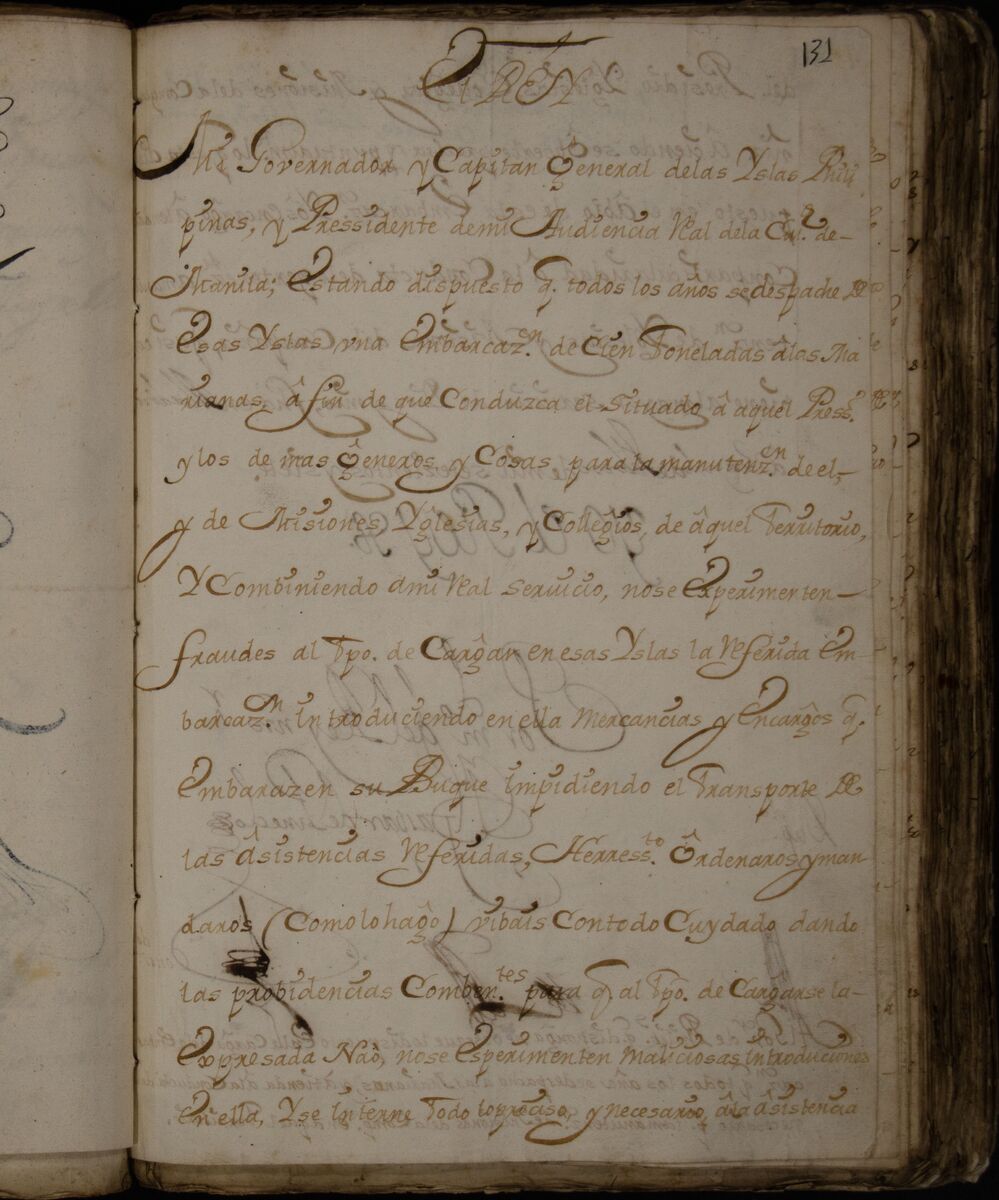 131
EL REY
Mi Governador y Capitan General delas Yslas Phili
pinas, y Pressidente demi Audiencia Real dela Ciu.d de
Manila; Estando dispuesto q. todos los años sedespache de
Esas Yslas vna Embarcaz.on de Cien Toneladas alas Ma
rianas, â fin de que Conduzca el Situado â aquel Press.o
y los de mas Generos, y Cosas para la manutenz.on de el,
y de Misiones, Yglesias, y Collegios, de âquel Territorio,
Y Combiniendo ami Real Seruicio, nose Experimenten
fraudes al Tpo. de Cargar en esas Yslas la Referida Em
barcaz.on introduciendo en ella Mercancias y Encargos q.
Embarazen su Buque impidiendo el Transporte de
las Asistencias Referidas, He rress.to Ordenaros y man
daros (Como lo hago) vibais Con todo Cuydado dando
las probidencias Comben.tes para q. al Tpo. de Cargarse la
Expresada Nao, nose Esperimenten Maliciosas introduciones
En ella, Y se interne Todo lo preciso, y necesario, âla âsistencia